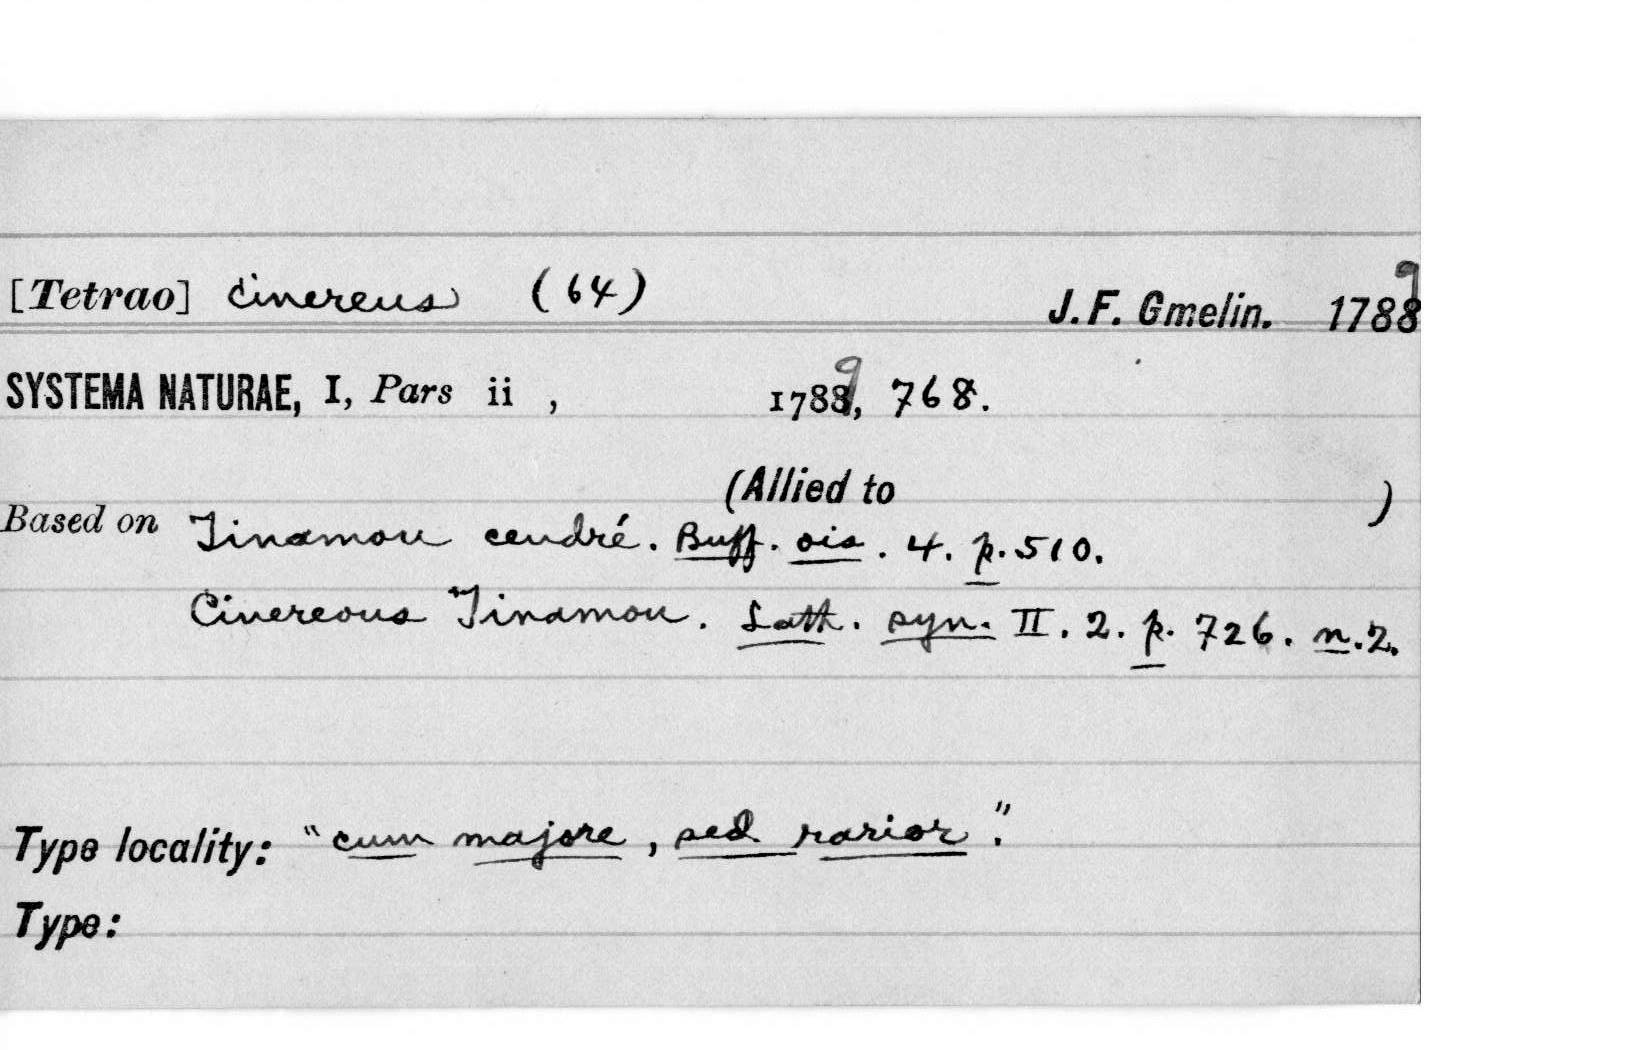 [Tetrao] cinereus (64) J. F. Gmelin. 1789
SYSTEMA NATURAE, I, Pars ii , 1789, 768.
(Allied to )
Based on Tinamou cendré. Buff. ois. 4. p. 510.
Cinereous Tinamou. Lath. syn. II. 2. p. 726. n. 2.
Type locality: "cum majore, sed rarior".
Type: